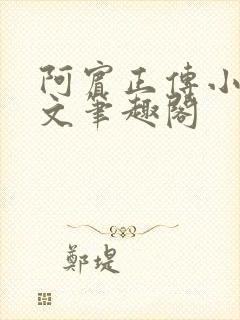 阿賓正傳小
文筆趣閣
鄭堤